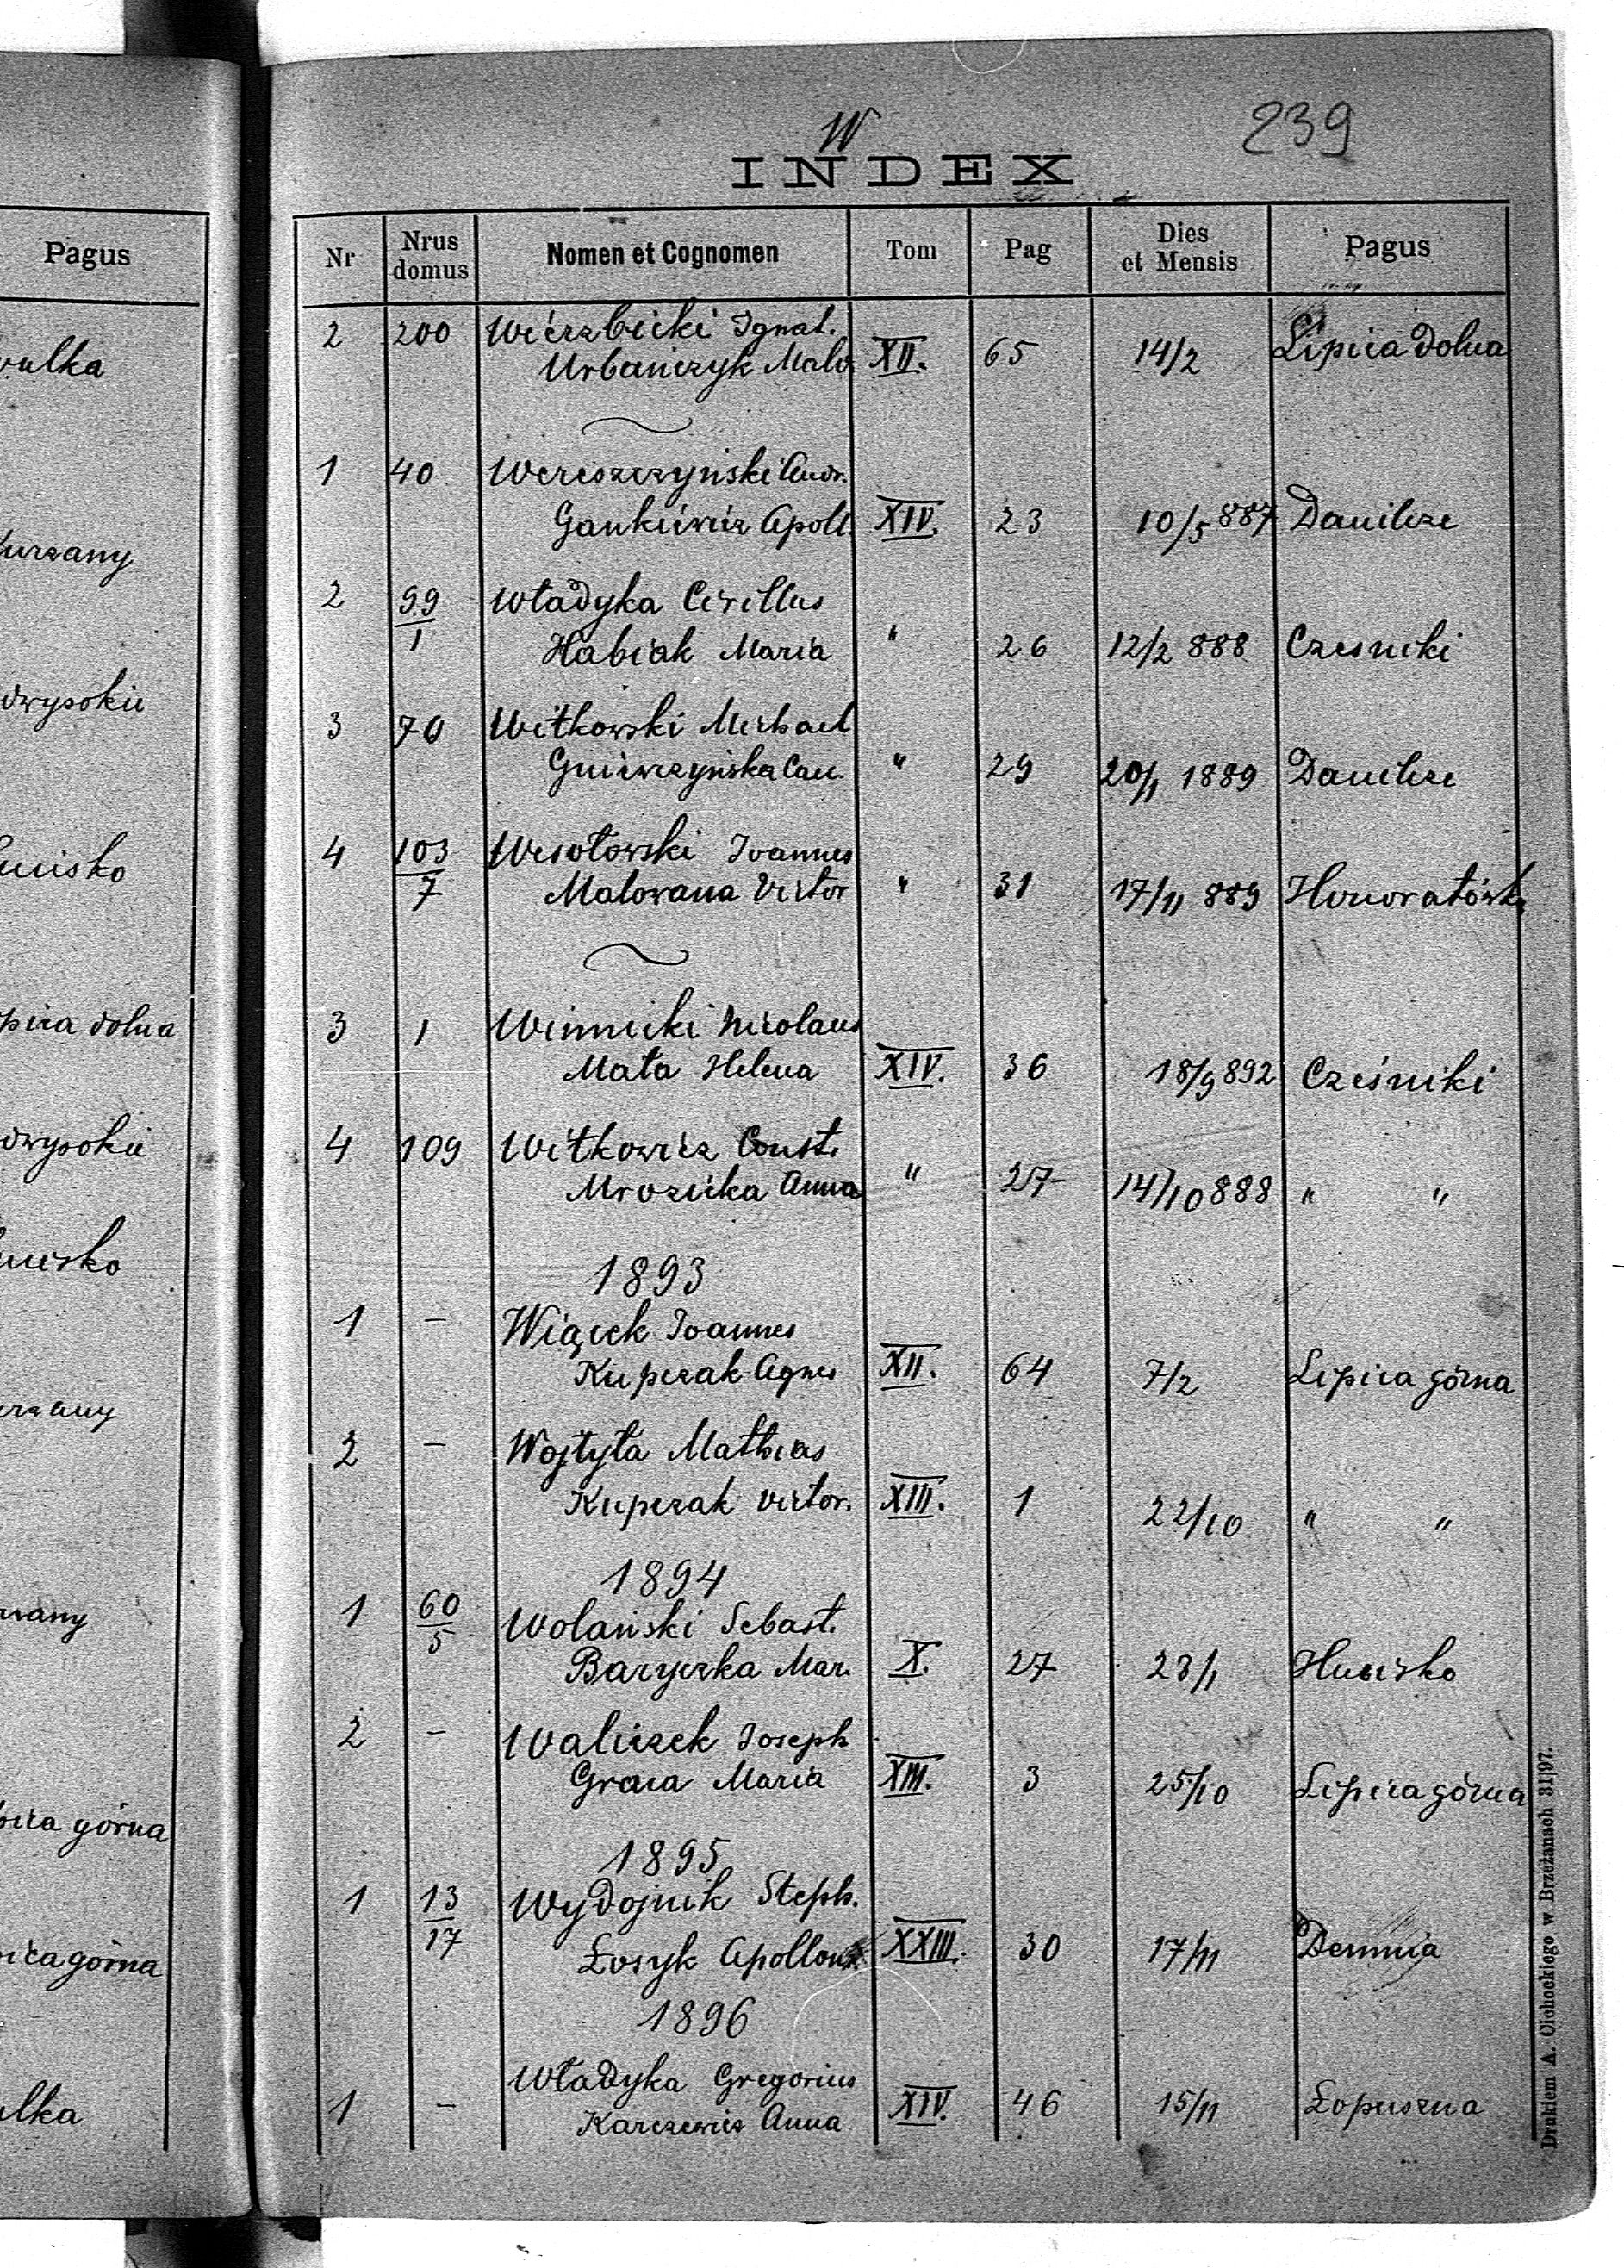 ulka
urzany
dwysokie
pica dolna
dwysokie
rzany
pica górna
ica górna
ulka
Pagus
W
239
INDEX
Nr Nrus domus Nomen et Cognomen Tom Pag Dies et Mensis Pagus
2 200 Wierzbicki Ignat.
Urbańczyk Malw XII. 65 14/2 Lipica dolna
1 40 Wereszczyński Andr.
Gankiewicz Apoll. XIV. 23 10/5 887 Danilcze
2 99/1 Władyka Cirillus
Habiak Maria " 26 12/2 888 Czesniki
3 70 Witkowski Michael
Gniewczyńska Car. " 29 20/1 1889 Danilcze
4 103/7 Wesołowski Joannes
Malowana Victor " 31 17/11 889 Honoratówka
3 1 Winnicki Nicolaus
Mata Helena XIV. 36 18/9 892 Cześniki
4 109 Witkowicz Const.
Mrozicka Anna " 27 14/10 888 " "
1893
1 — Wiącek Joannes
Kupczak Agnes XII. 64 7/2 Lipica górna
2 — Wojtyła Mathias
Kupczak Victor. XIII. 1 22/10 " "
1894
1 60/5 Wolański Sebast.
Baryczka Mar. X. 27 28/1 Hucisko
2 — Waliczek Joseph
Graca Maria XIII. 3 25/10 Lipica górna
1895
1 13/17 Wydojnik Steph.
Łosyk Apollon XXIII. 30 17/11 Demnia
1896
1 — Władyka Gregorius
Karczewicz Anna XIV. 46 15/11 Łopuszna
Drukiem A. Olchockiego w Brzeżanach 31|97.